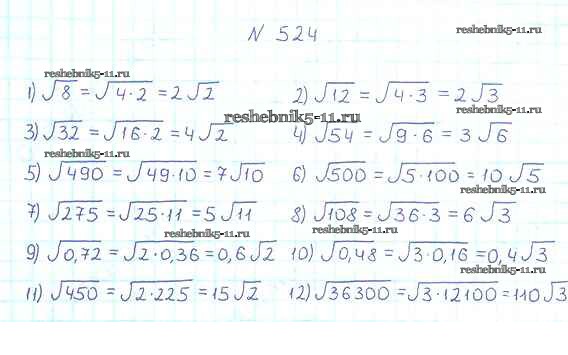 N 524
reshebnik5-11.ru
reshebnik5-11.ru
1) √8 = √4·2 = 2√2 2) √12 = √4·3 = 2√3
reshebnik5-11.ru
reshebnik5-11.ru
3) √32 = √16·2 = 4√2 4) √54 = √9·6 = 3√6
reshebnik5-11.ru
5) √490 = √49·10 = 7√10 6) √500 = √5·100 = 10√5
reshebnik5-11.ru
7) √275 = √25·11 = 5√11 8) √108 = √36·3 = 6√3
reshebnik5-11.ru
reshebnik5-11.ru
9) √0,72 = √2·0,36 = 0,6√2 10) √0,48 = √3·0,16 = 0,4√3
reshebnik5-11.ru
11) √450 = √2·225 = 15√2 12) √36300 = √3·12100 = 110√3